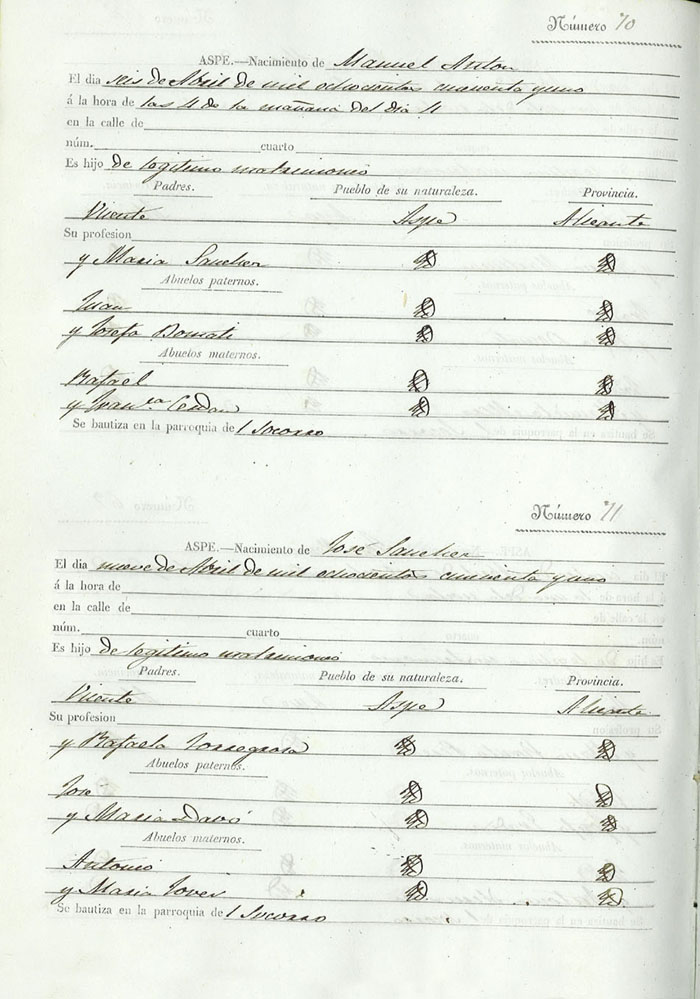 Número 70
ASPE.—Nacimiento de Manuel Anton
El dia seis de Abril de mil ochocientos cuarenta y uno
á la hora de las 4 de la mañana del dia 4
en la calle de
núm. cuarto
Es hijo de legitimo matrimonio
Padres. Pueblo de su naturaleza. Provincia.
Vicente Aspe Alicante
Su profesion
y Maria Sanchez
Abuelos paternos.
Juan
y Josefa
Abuelos maternos.
Rafael
y Fran.ca
Se bautiza en la parroquia del Socorro
Número 71
ASPE.—Nacimiento de José Sanchez
El dia nueve de Abril de mil ochocientos cuarenta y uno
á la hora de
en la calle de
núm. cuarto
Es hijo de legitimo matrimonio
Padres. Pueblo de su naturaleza. Provincia.
Vicente Aspe Alicante
Su profesion
y Rafaela Torregrosa
Abuelos paternos.
José
y Maria Davó
Abuelos maternos.
Antonio
y Maria Jover
Se bautiza en la parroquia del Socorro